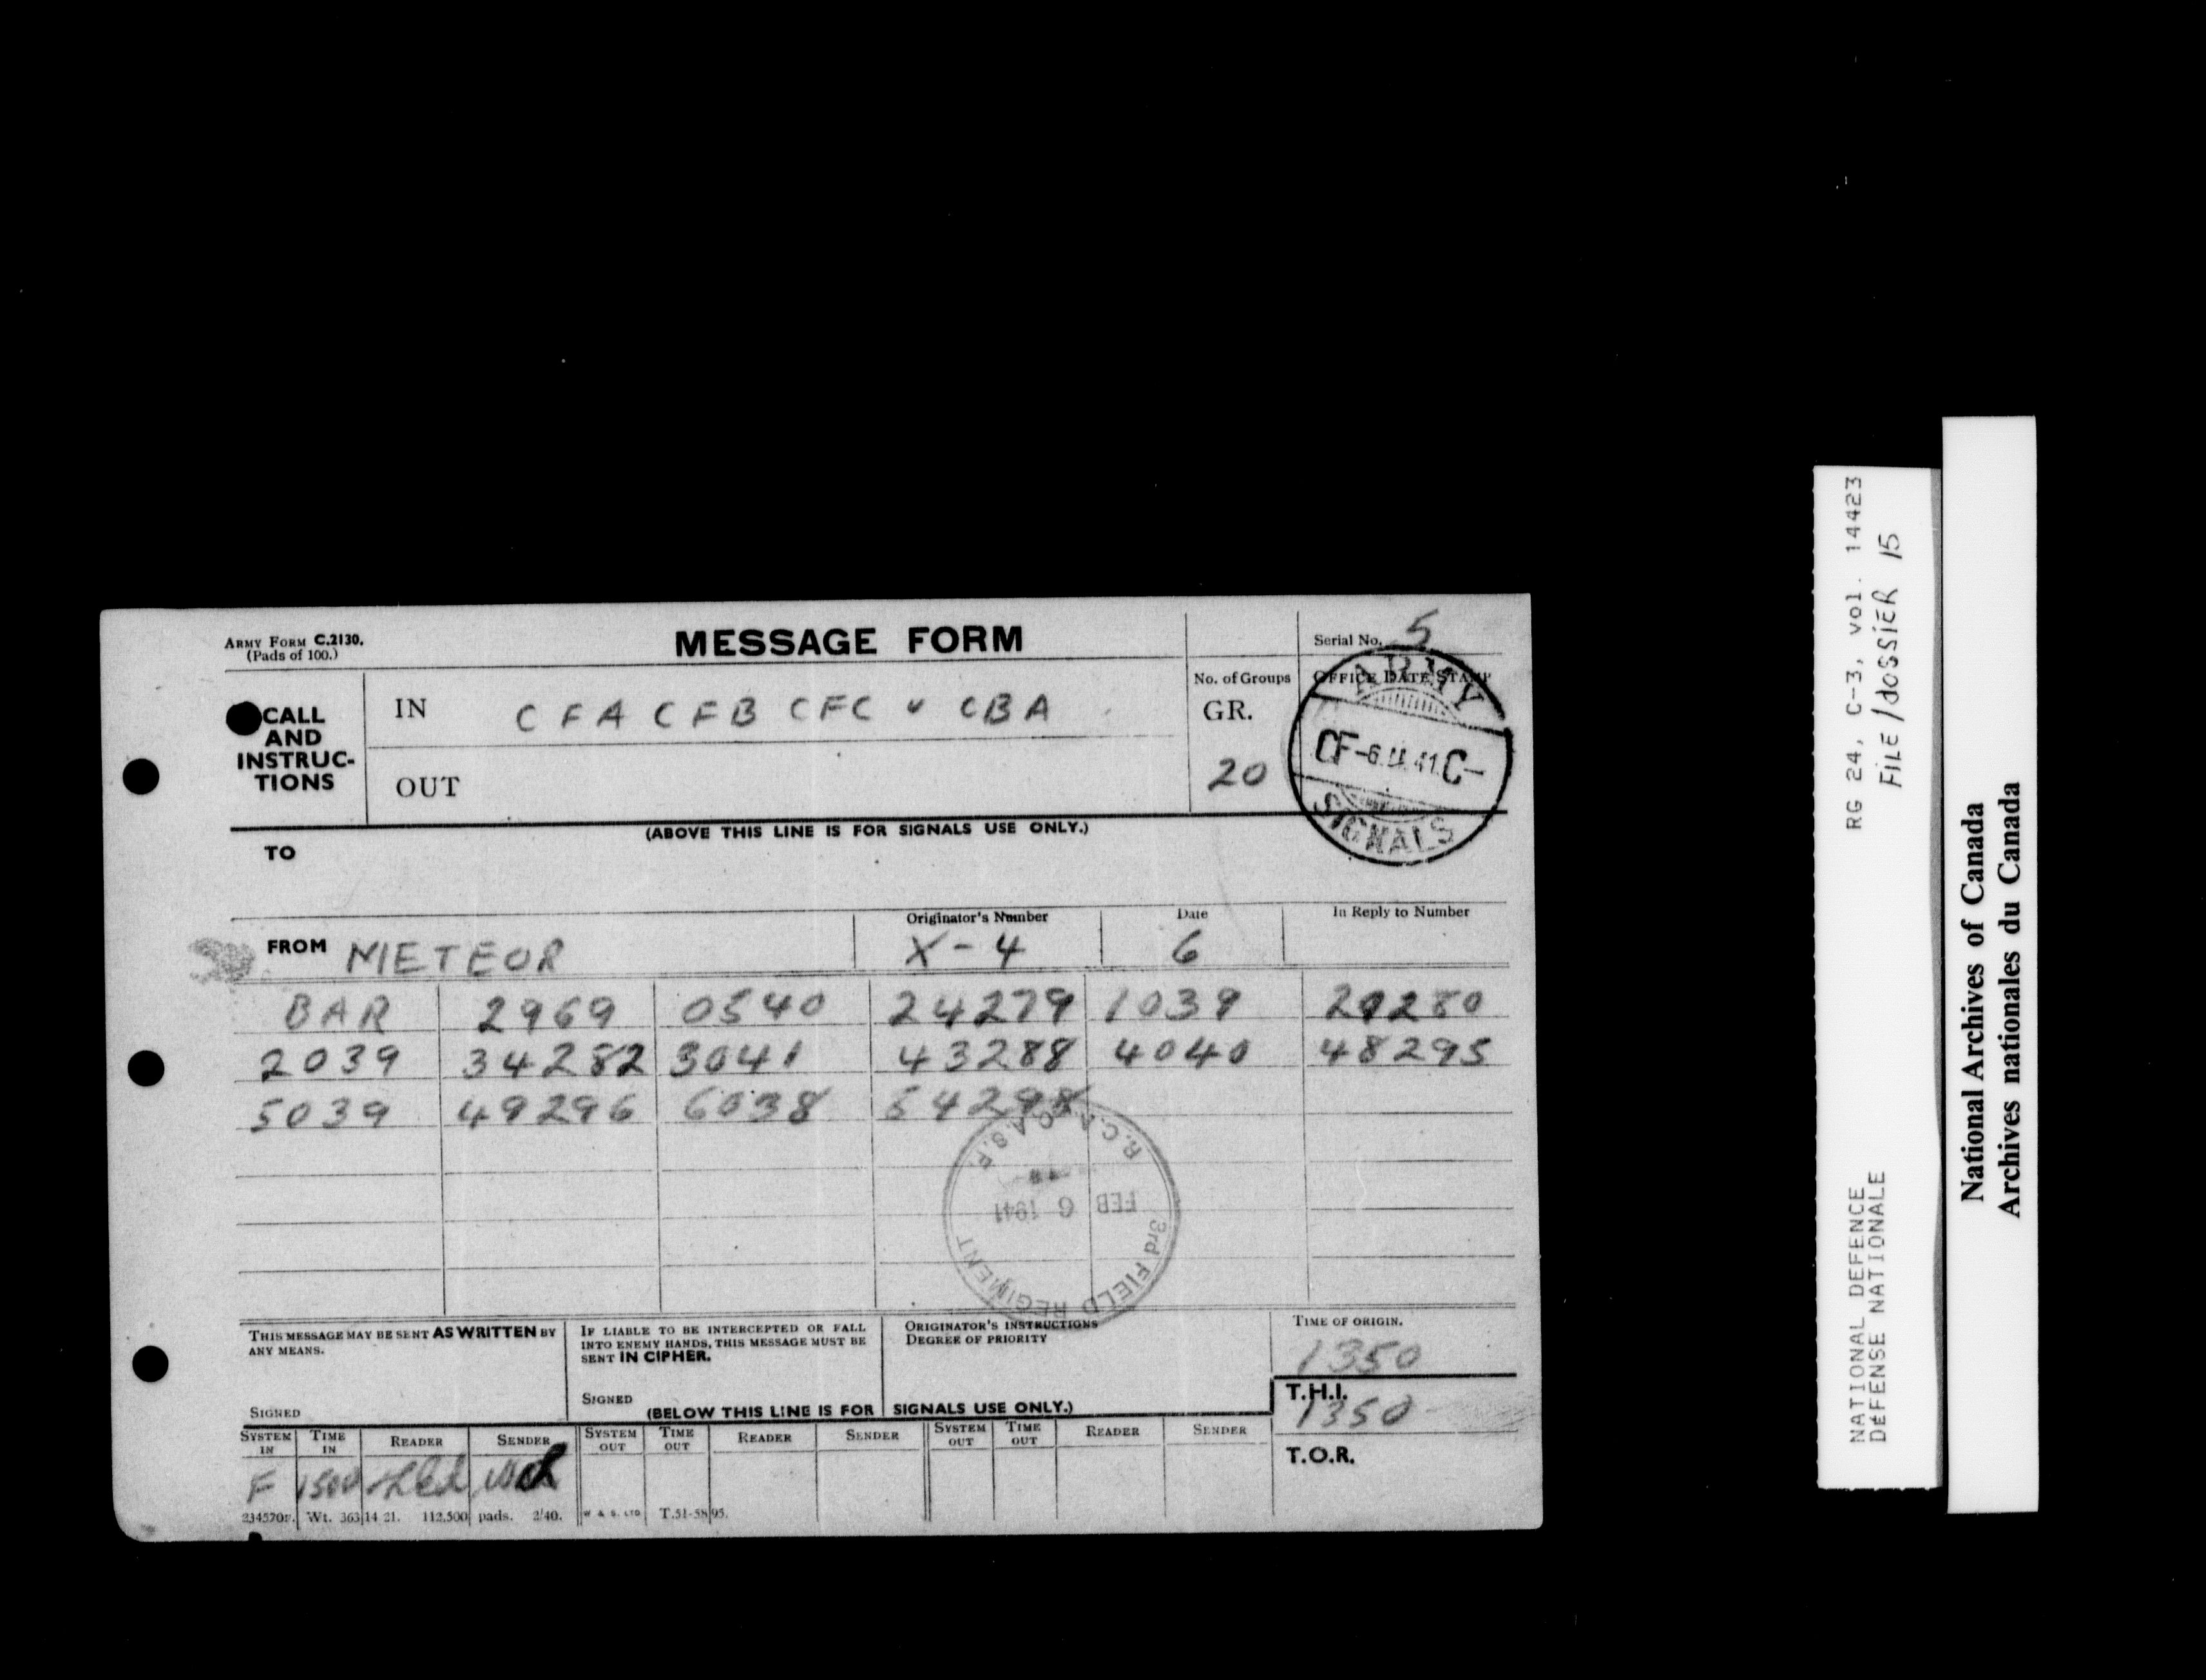 ARMY FORM C.2130.
(Pads of 100.)
MESSAGE FORM
Serial No. 5
CALL AND INSTRUCTIONS
IN C F A C F B C F C v C B A
OUT
No. of Groups
GR.
20
OFFICE DATE STAMP
ARMY
CF-6.II.41.C-
SIGNALS
(ABOVE THIS LINE IS FOR SIGNALS USE ONLY.)
TO
FROM METEOR
Originator's Number
X-4
Date
6
In Reply to Number
BAR 2969 0540 24279 1039 29280
2039 34282 3041 43288 4040 48295
5039 49296 6038 54298
3rd FIELD REGIMENT
FEB 6 1941
R.C.A. C.A.S.F.
THIS MESSAGE MAY BE SENT AS WRITTEN BY ANY MEANS.
SIGNED
IF LIABLE TO BE INTERCEPTED OR FALL INTO ENEMY HANDS, THIS MESSAGE MUST BE SENT IN CIPHER.
SIGNED
ORIGINATOR'S INSTRUCTIONS
DEGREE OF PRIORITY
TIME OF ORIGIN.
1350
T.H.I.
1350
T.O.R.
(BELOW THIS LINE IS FOR SIGNALS USE ONLY.)
SYSTEM IN TIME IN READER SENDER SYSTEM OUT TIME OUT READER SENDER SYSTEM OUT TIME OUT READER SENDER
F 1500
Wt. 363 14 21. 112,500 pads. 2/40. W & S. LTD T.51-58 95.
RG 24, C-3, vol. 14423
FILE/dossier 15
NATIONAL DEFENCE
DÉFENSE NATIONALE
National Archives of Canada
Archives nationales du Canada